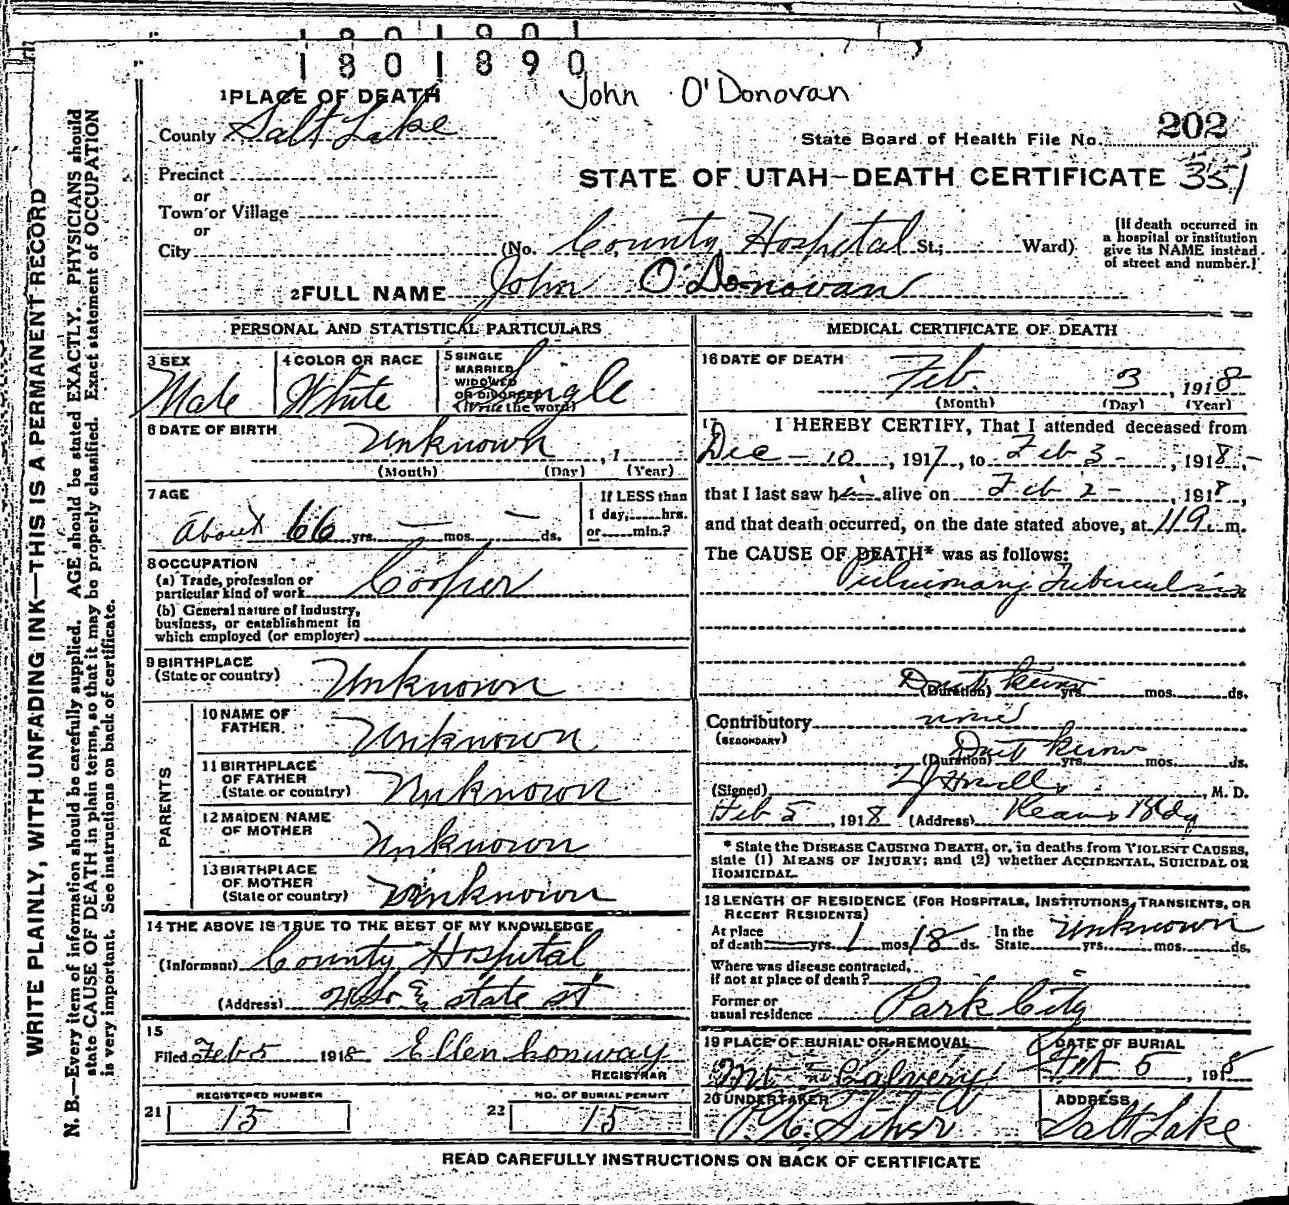 1 8 0 1 8 9 0
John O'Donovan
1 PLACE OF DEATH
County Salt Lake
State Board of Health File No. 202
Precinct
or
STATE OF UTAH—DEATH CERTIFICATE 351
Town or Village
or
City (No. County Hospital St.; Ward)
[If death occurred in
a hospital or institution
give its NAME instead
of street and number.]
2 FULL NAME John O'Donovan
WRITE PLAINLY, WITH UNFADING INK—THIS IS A PERMANENT RECORD
N. B.—Every item of information should be carefully supplied. AGE should be stated EXACTLY. PHYSICIANS should
state CAUSE OF DEATH in plain terms, so that it may be properly classified. Exact statement of OCCUPATION
is very important. See instructions on back of certificate.
PERSONAL AND STATISTICAL PARTICULARS
3 SEX
Male
4 COLOR OR RACE
White
5 SINGLE
MARRIED
WIDOWED
OR DIVORCED
(Write the word)
Single
6 DATE OF BIRTH
Unknown , 1
(Month) (Day) (Year)
7 AGE
About 66 yrs. — mos. — ds.
If LESS than
1 day, hrs.
or min.?
8 OCCUPATION
(a) Trade, profession or
particular kind of work Cooper
(b) General nature of industry,
business, or establishment in
which employed (or employer)
9 BIRTHPLACE
(State or country) Unknown
PARENTS
10 NAME OF
FATHER Unknown
11 BIRTHPLACE
OF FATHER
(State or country) Unknown
12 MAIDEN NAME
OF MOTHER Unknown
13 BIRTHPLACE
OF MOTHER
(State or country) Unknown
14 THE ABOVE IS TRUE TO THE BEST OF MY KNOWLEDGE
(Informant) County Hospital
(Address) & state st
15
Filed Feb 5 1918 Ellen Conway
REGISTRAR
21 REGISTERED NUMBER
15
22 NO. OF BURIAL PERMIT
15
MEDICAL CERTIFICATE OF DEATH
16 DATE OF DEATH
Feb 3 , 1918
(Month) (Day) (Year)
17 I HEREBY CERTIFY, That I attended deceased from
Dec - 10 , 1917, to Feb 3 - , 1918,
that I last saw him alive on Feb 2 - , 1918,
and that death occurred, on the date stated above, at m.
The CAUSE OF DEATH* was as follows:
Pulmonary Tuberculosis
Don't know
(Duration) yrs. mos. ds.
Contributory none
(SECONDARY)
Don't know
(Duration) yrs. mos. ds.
(Signed) , M. D.
Feb 5 , 1918 (Address) Kearns Bldg
* State the DISEASE CAUSING DEATH, or, in deaths from VIOLENT CAUSES,
state (1) MEANS OF INJURY; and (2) whether ACCIDENTAL, SUICIDAL OR
HOMICIDAL.
18 LENGTH OF RESIDENCE (FOR HOSPITALS, INSTITUTIONS, TRANSIENTS, OR
RECENT RESIDENTS)
At place
of death yrs. 1 mos. 18 ds. In the
State Unknown yrs. mos. ds.
Where was disease contracted,
if not at place of death?
Former or
usual residence Park City
19 PLACE OF BURIAL OR REMOVAL
Mt Calvery
DATE OF BURIAL
Feb 5 , 1918
20 UNDERTAKER
ADDRESS
Salt Lake
READ CAREFULLY INSTRUCTIONS ON BACK OF CERTIFICATE